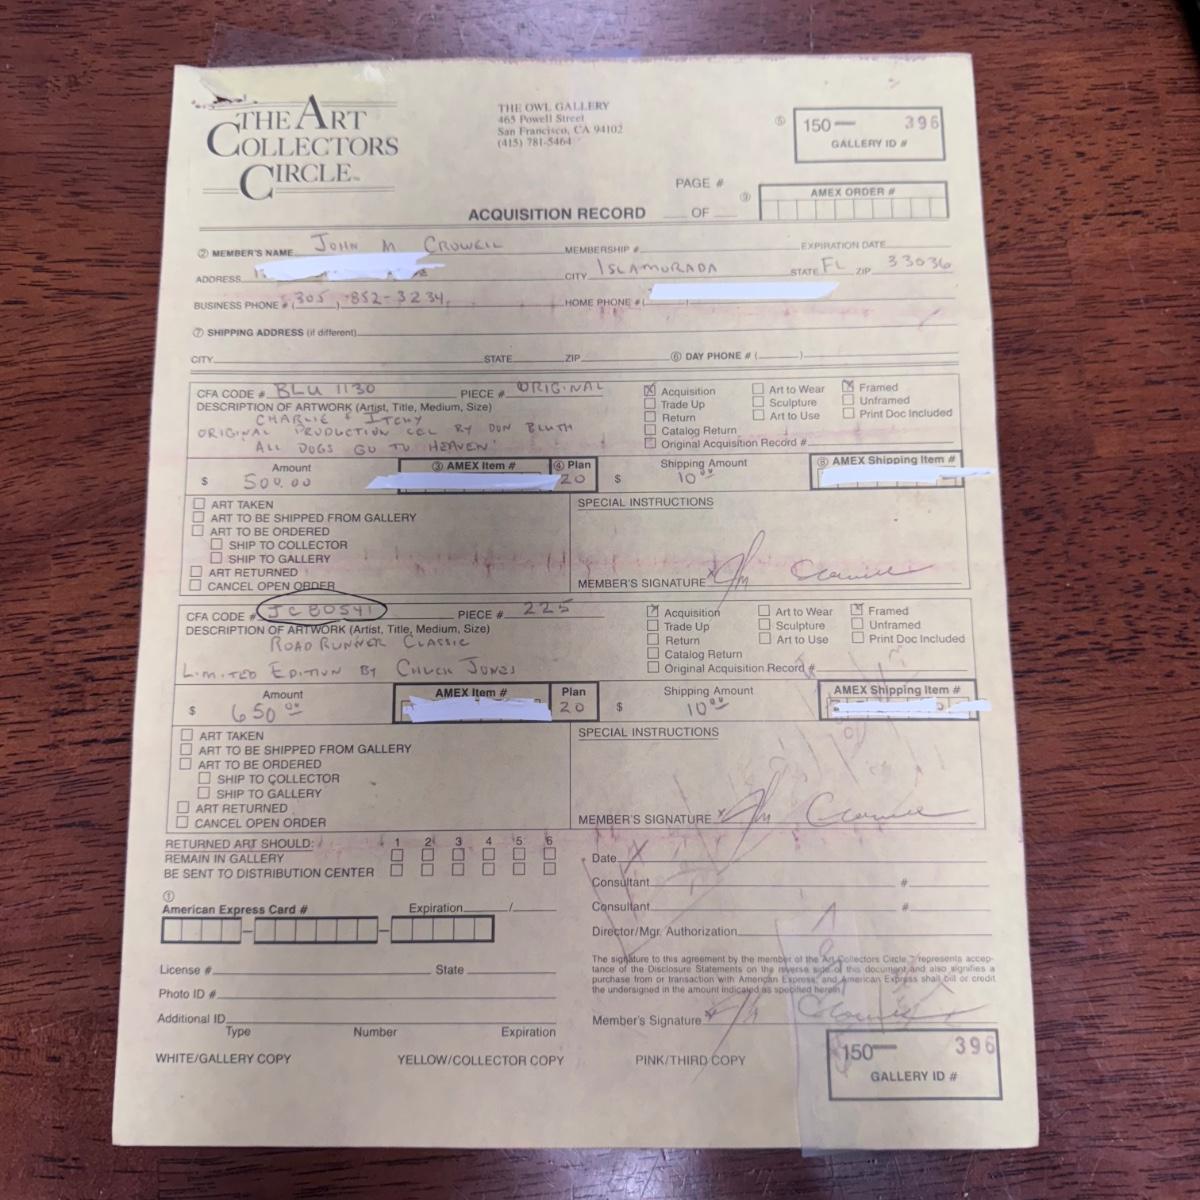 THE ART
COLLECTORS
CIRCLE™
THE OWL GALLERY
465 Powell Street
San Francisco, CA 94102
(415) 781-5464
⑤ 150— 396
GALLERY ID #
PAGE #
___ OF ___
⑨ AMEX ORDER #
ACQUISITION RECORD
② MEMBER'S NAME JOHN M CROWELL MEMBERSHIP # EXPIRATION DATE
ADDRESS CITY ISLAMORADA STATE FL ZIP 33036
BUSINESS PHONE # (305) 852-3234 HOME PHONE # ( )
⑦ SHIPPING ADDRESS (if different)
CITY STATE ZIP ⑥ DAY PHONE # ( )
CFA CODE # BLU 1130 PIECE # ORIGINAL
DESCRIPTION OF ARTWORK (Artist, Title, Medium, Size)
CHARLIE & ITCHY
ORIGINAL PRODUCTION CEL BY DON BLUTH
ALL DOGS GO TO HEAVEN
Acquisition Art to Wear Framed
Trade Up Sculpture Unframed
Return Art to Use Print Doc Included
Catalog Return
Original Acquisition Record #
Amount ③ AMEX Item # ④ Plan Shipping Amount ⑧ AMEX Shipping Item #
$ 500.00 20 $ 10⁰⁰
ART TAKEN
ART TO BE SHIPPED FROM GALLERY
ART TO BE ORDERED
SHIP TO COLLECTOR
SHIP TO GALLERY
ART RETURNED
CANCEL OPEN ORDER
SPECIAL INSTRUCTIONS
MEMBER'S SIGNATURE x
CFA CODE # JCB0541 PIECE # 225
DESCRIPTION OF ARTWORK (Artist, Title, Medium, Size)
ROAD RUNNER CLASSIC
LIMITED EDITION BY CHUCK JONES
Acquisition Art to Wear Framed
Trade Up Sculpture Unframed
Return Art to Use Print Doc Included
Catalog Return
Original Acquisition Record #
Amount AMEX Item # Plan Shipping Amount AMEX Shipping Item #
$ 650⁰⁰ 20 $ 10⁰⁰
ART TAKEN
ART TO BE SHIPPED FROM GALLERY
ART TO BE ORDERED
SHIP TO COLLECTOR
SHIP TO GALLERY
ART RETURNED
CANCEL OPEN ORDER
SPECIAL INSTRUCTIONS
MEMBER'S SIGNATURE x
RETURNED ART SHOULD: 1 2 3 4 5 6
REMAIN IN GALLERY
BE SENT TO DISTRIBUTION CENTER
①
American Express Card # Expiration /
License # State
Photo ID #
Additional ID
Type Number Expiration
Date
Consultant #
Consultant #
Director/Mgr. Authorization
The signature to this agreement by the member of the Art Collectors Circle™ represents accep-
tance of the Disclosure Statements on the reverse side of this document and also signifies a
purchase from or transaction with American Express, and American Express shall bill or credit
the undersigned in the amount indicated as specified herein.
Member's Signature x
150— 396
GALLERY ID #
WHITE/GALLERY COPY YELLOW/COLLECTOR COPY PINK/THIRD COPY